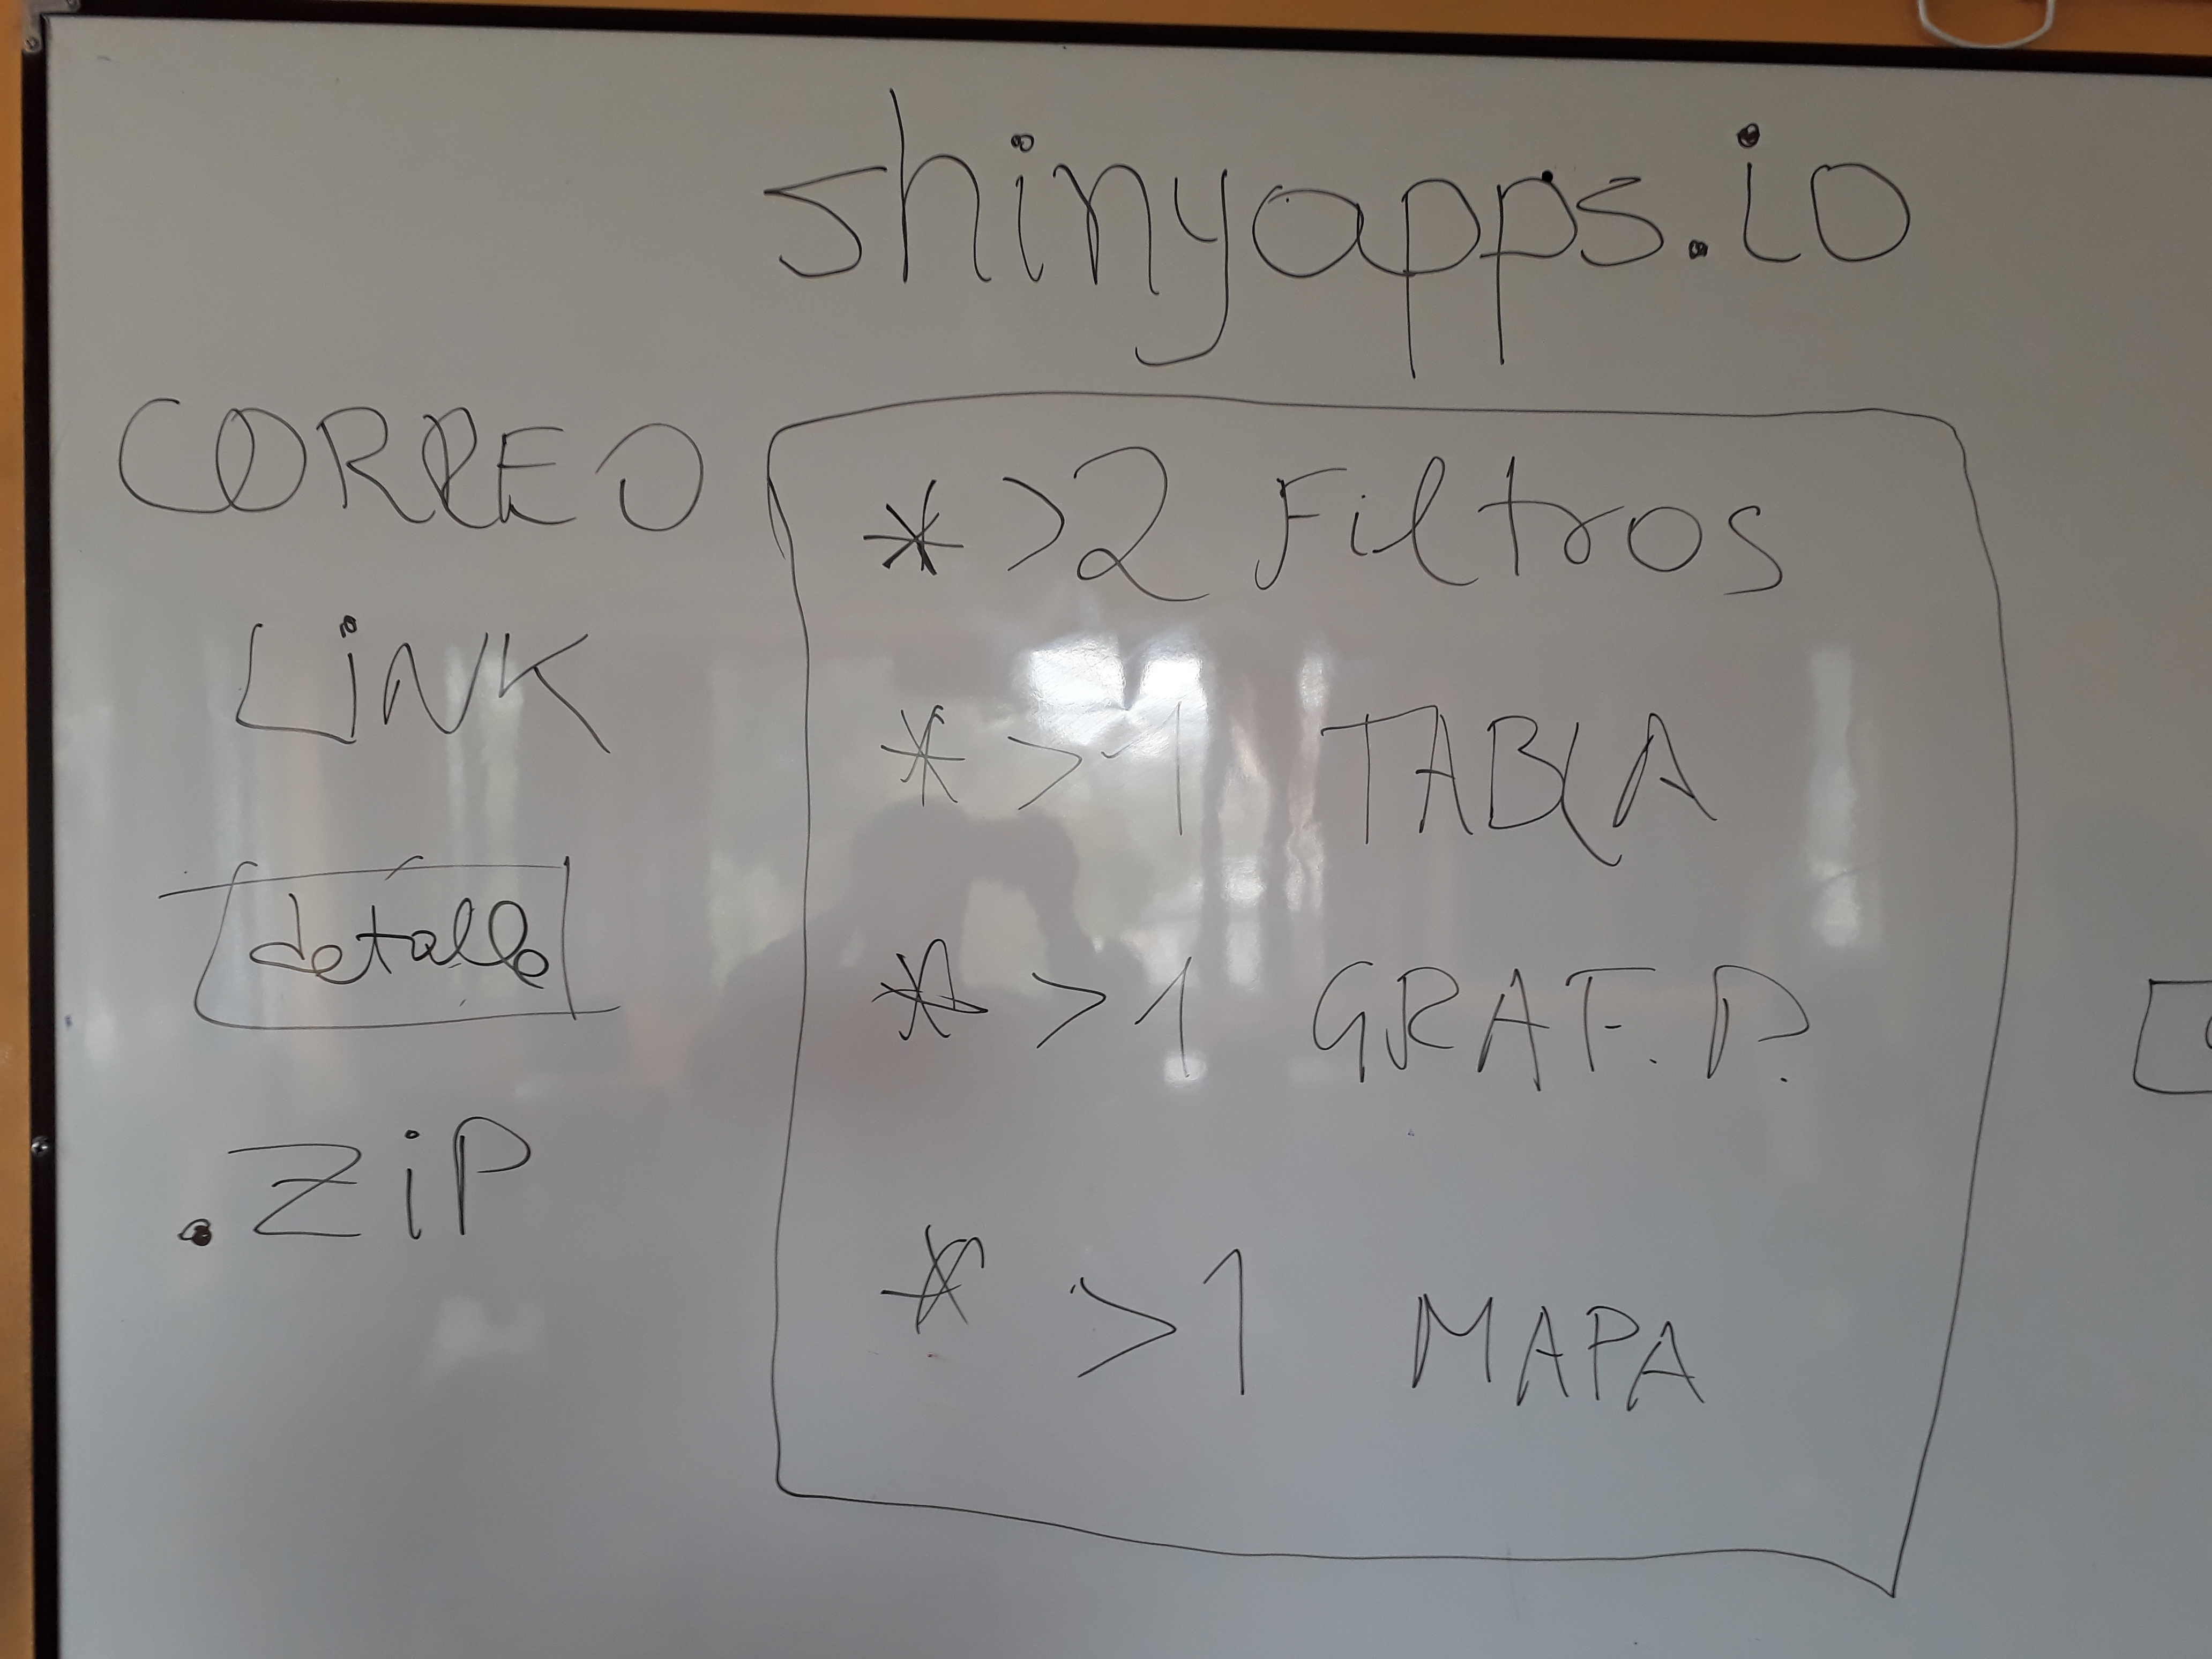 shinyapps.io
CORREO
LiNK
detalle
.ZiP
* >2 Filtros
* >1 TABLA
* >1 GRAF. D.
* >1 MAPA